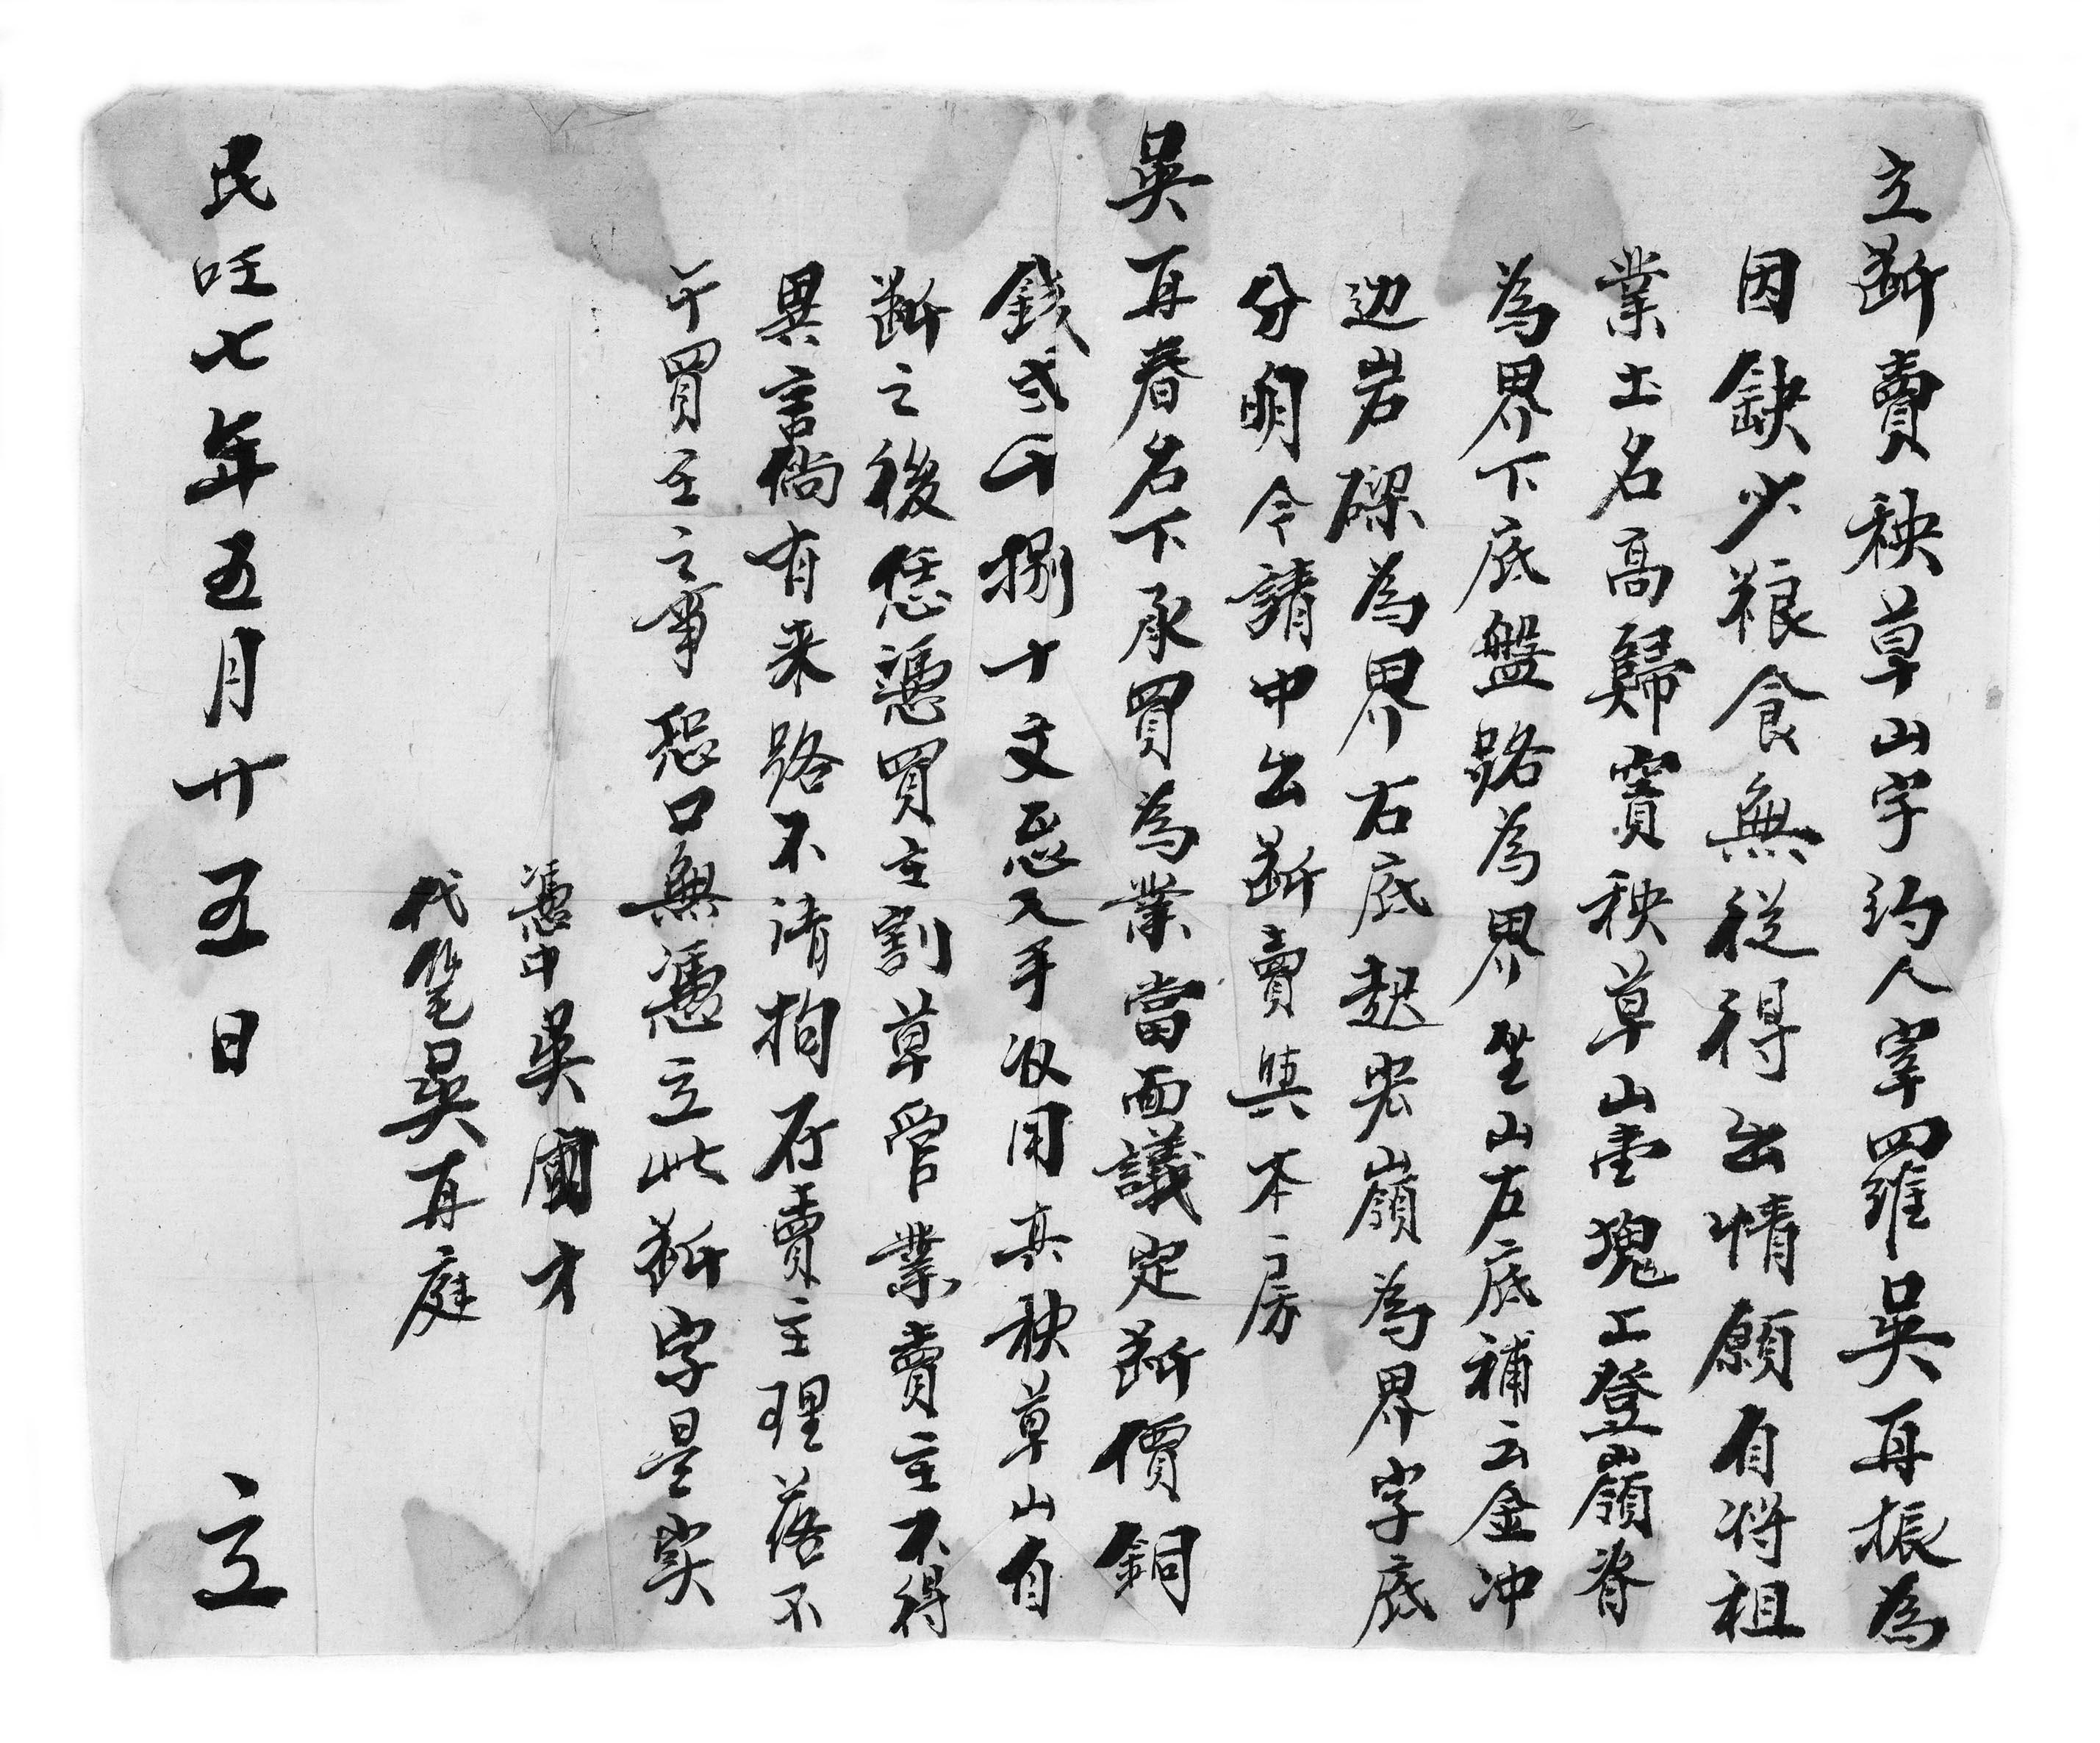 立斷賣秧草山字約人宰羅吳再振為
因缺少粮食無從得出情願自將祖
業土名高歸竇秧草山壹塊上登嶺脊
為界下底盤路為界坐山左底補云金冲
边岩磜為界右底起嶺為界字底
分明今請中出斷賣與本房
吳再春名下承買為業當面議定斷價銅
錢弍仟捌十文忢入手收用其秧草山自
斷之後恁憑買主割草管業賣主不得
異言倘有来路不清拘在賣主理落不
干買主之事恐口無憑立此斷字是实
憑中吳國才
代笔吳再庭
民旺七年五月廿五日 立